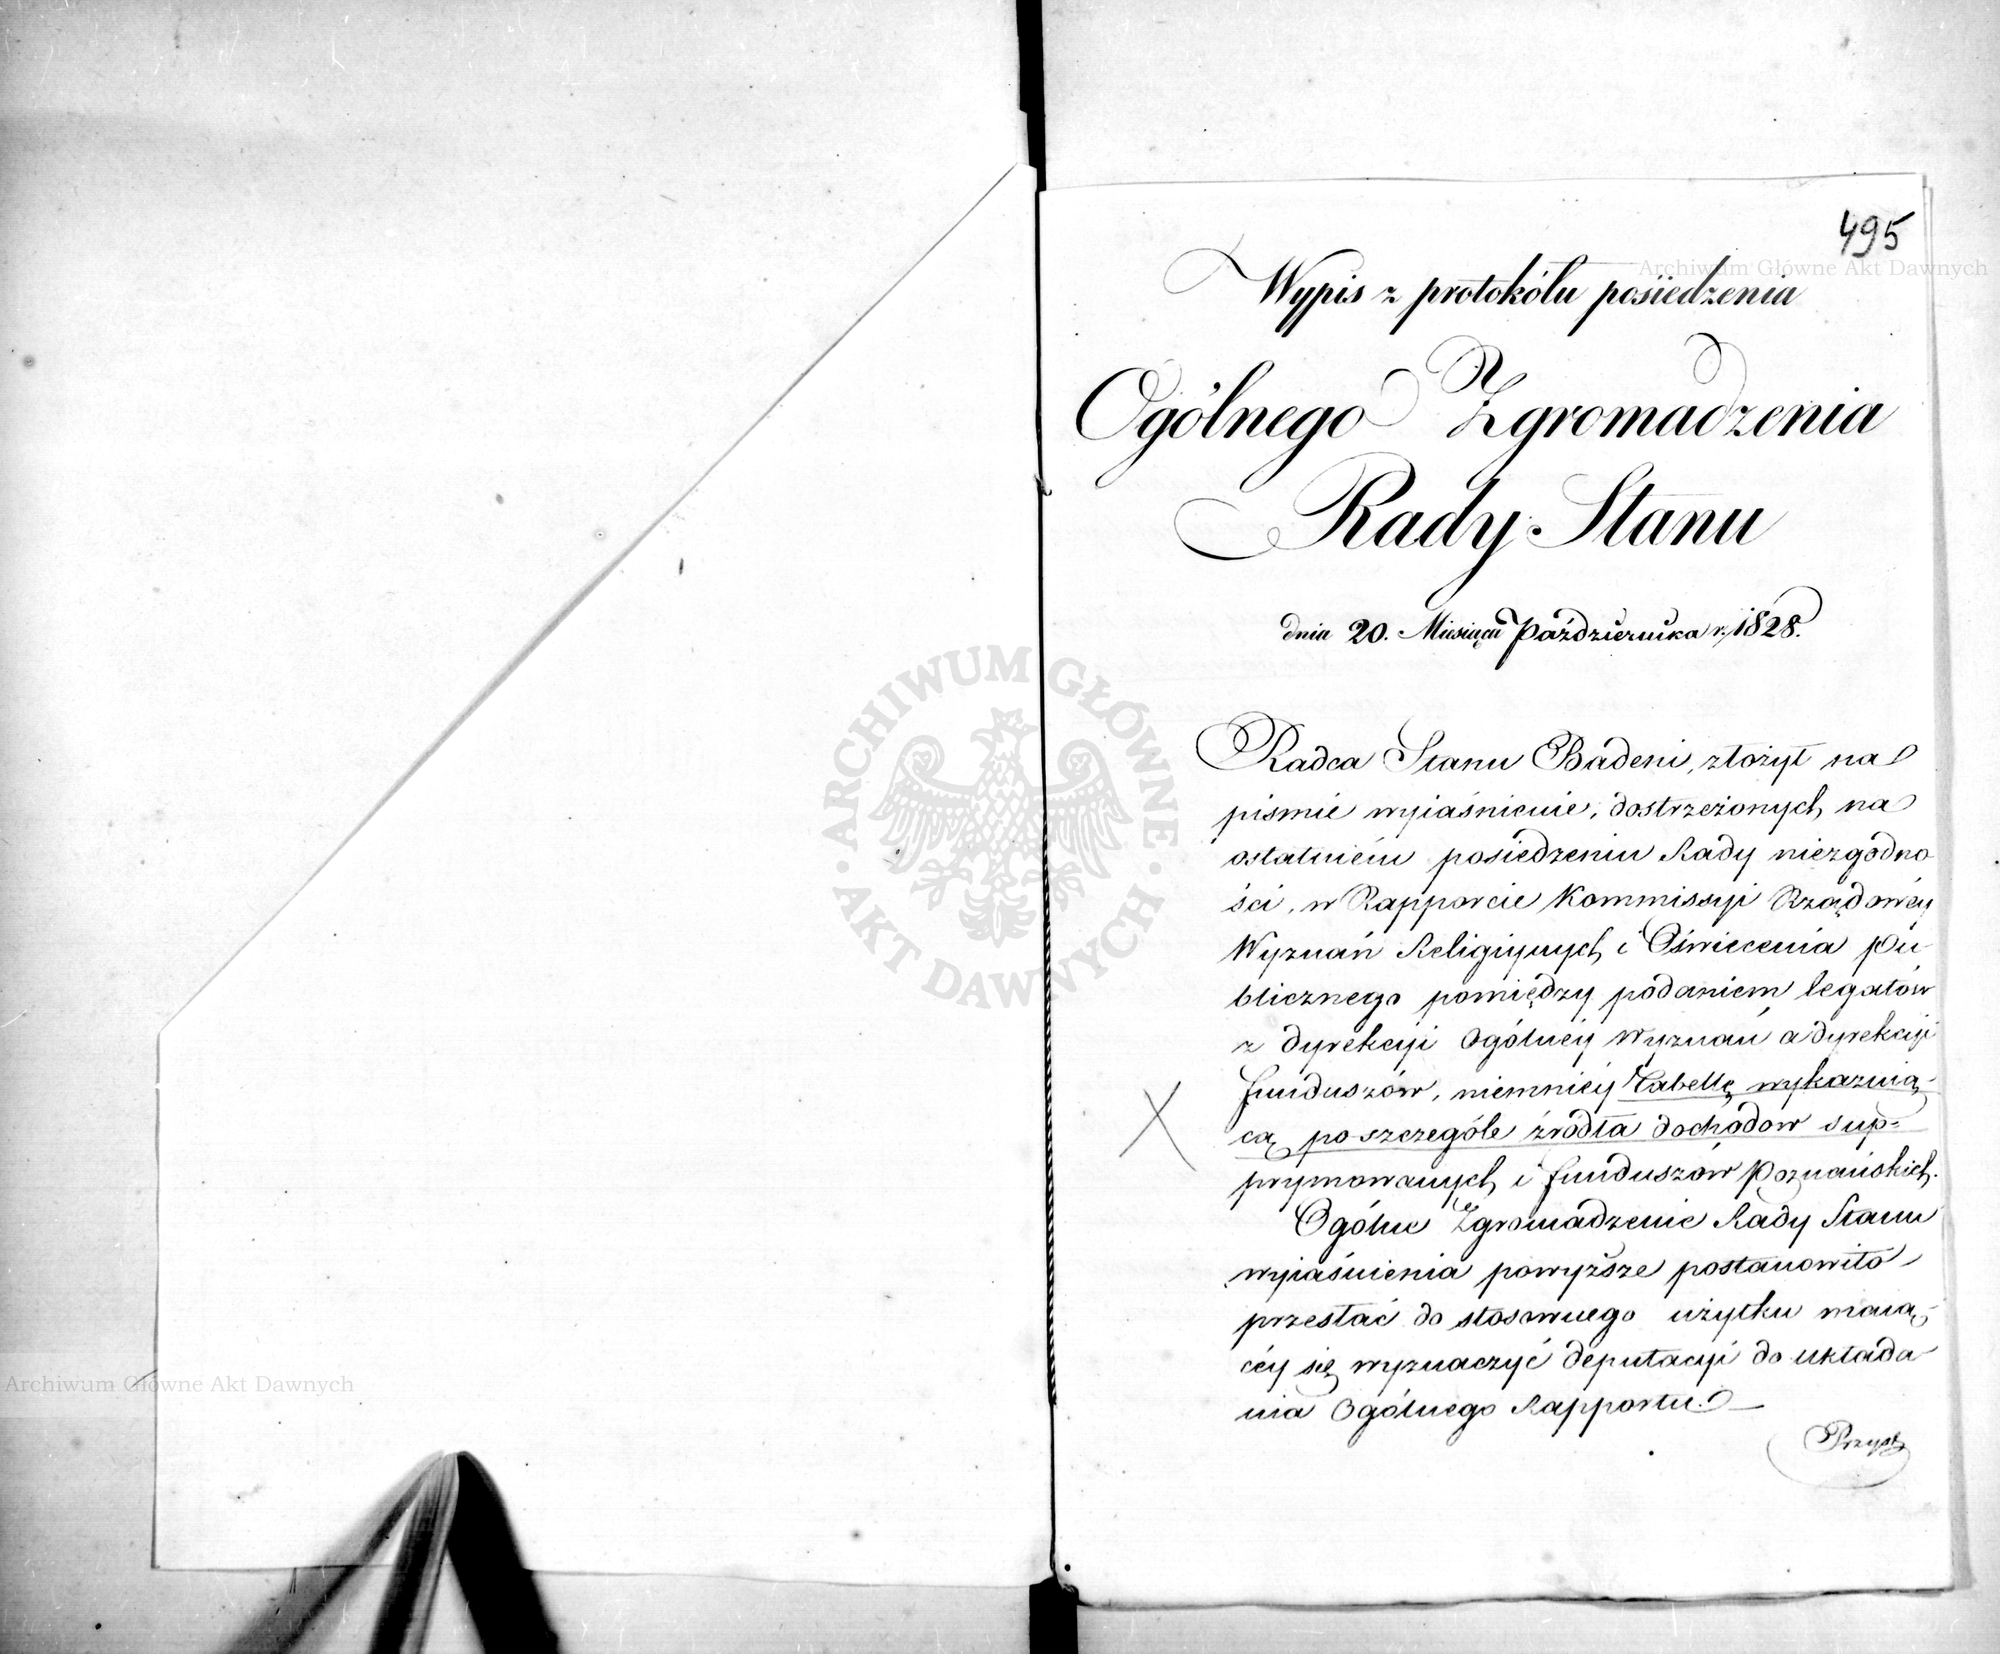 495
Wypis z protokółu posiedzenia
Ogólnego Zgromadzenia
Rady Stanu
dnia 20. Miesiąca Października r. 1828.
Radca Stanu Badeni, złożył na
piśmie wyiaśnienie, dostrzeżonych na
ostatniém posiedzeniu Rady niezgodno
ści, w Rapporcie Kommissyi Rządowéy
Wyznań Religiynych i Oświecenia pu
blicznego pomiędzy podaniem legatów
z dyrekcyi Ogólnéy Wyznań, a dyrekcyi
funduszów, niemniéy Tabellę wykazuią-
cą poszczególe źródła dochodow sup-
prymowanych i funduszów Poznańskich.
Ogólne Zgromadzenie Rady Stanu
wyiaśnienia powyższe postanowiło
przesłać do stosownego użytku maią-
céy się wyznaczyć deputacyi do układa
nia Ogólnego Rapportu.
Archiwum Główne Akt Dawnych
ARCHIWUM GŁÓWNE · AKT DAWNYCH ·
Archiwum Główne Akt Dawnych